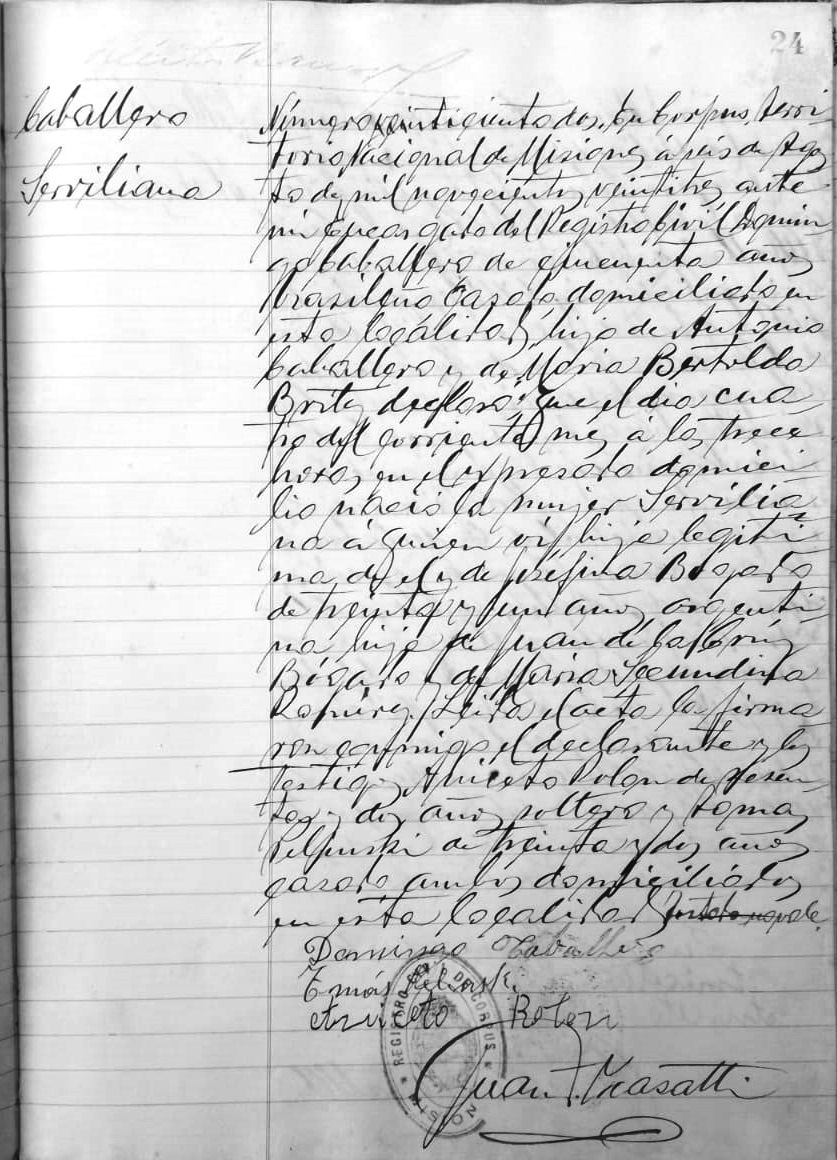 24
Caballero
Serviliana
Número veinticiento dos. En Corpus, Terri
torio Nacional de Misiones, á seis de Agos
to de mil novecientos veintitres, ante
mi Encargado del Registro Civil, Domin
go Caballero de cincuenta años,
brasileño Casado domiciliado en
esta localidad, hijo de Antonio
Caballero y de Maria Bertolda
Brites declaró: Que el dia cua
tro del corriente mes á las trece
horas en el expresado domici
lio nació la mujer Servilia
na á quien ví, hija legiti
ma, de el y de Josefina Bogado
de treinta y un años argenti
na hija de Juan de la Cruz
Bogado y de Maria Secundina
Ramirez. Leida el acta la firma
ron conmigo el declarante y los
testigos, Aniceto Rolon de sesen
ta y dos años soltero y Tomas
Pelinski de treinta y dos años
casado ambos domiciliados
en esta localidad
Domingo Caballero
Tomás Pelinski
Aniceto Rolon
REGISTRO CIVIL DE CORPUS
Juan F. Masatti